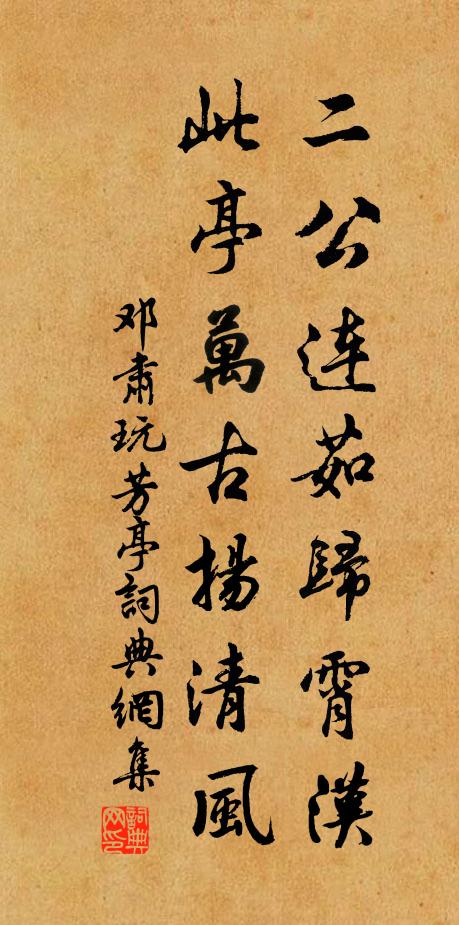 二公连茹歸霄漢
此亭萬古揚清風
邓肅玩芳亭詞典網集
詞典网印